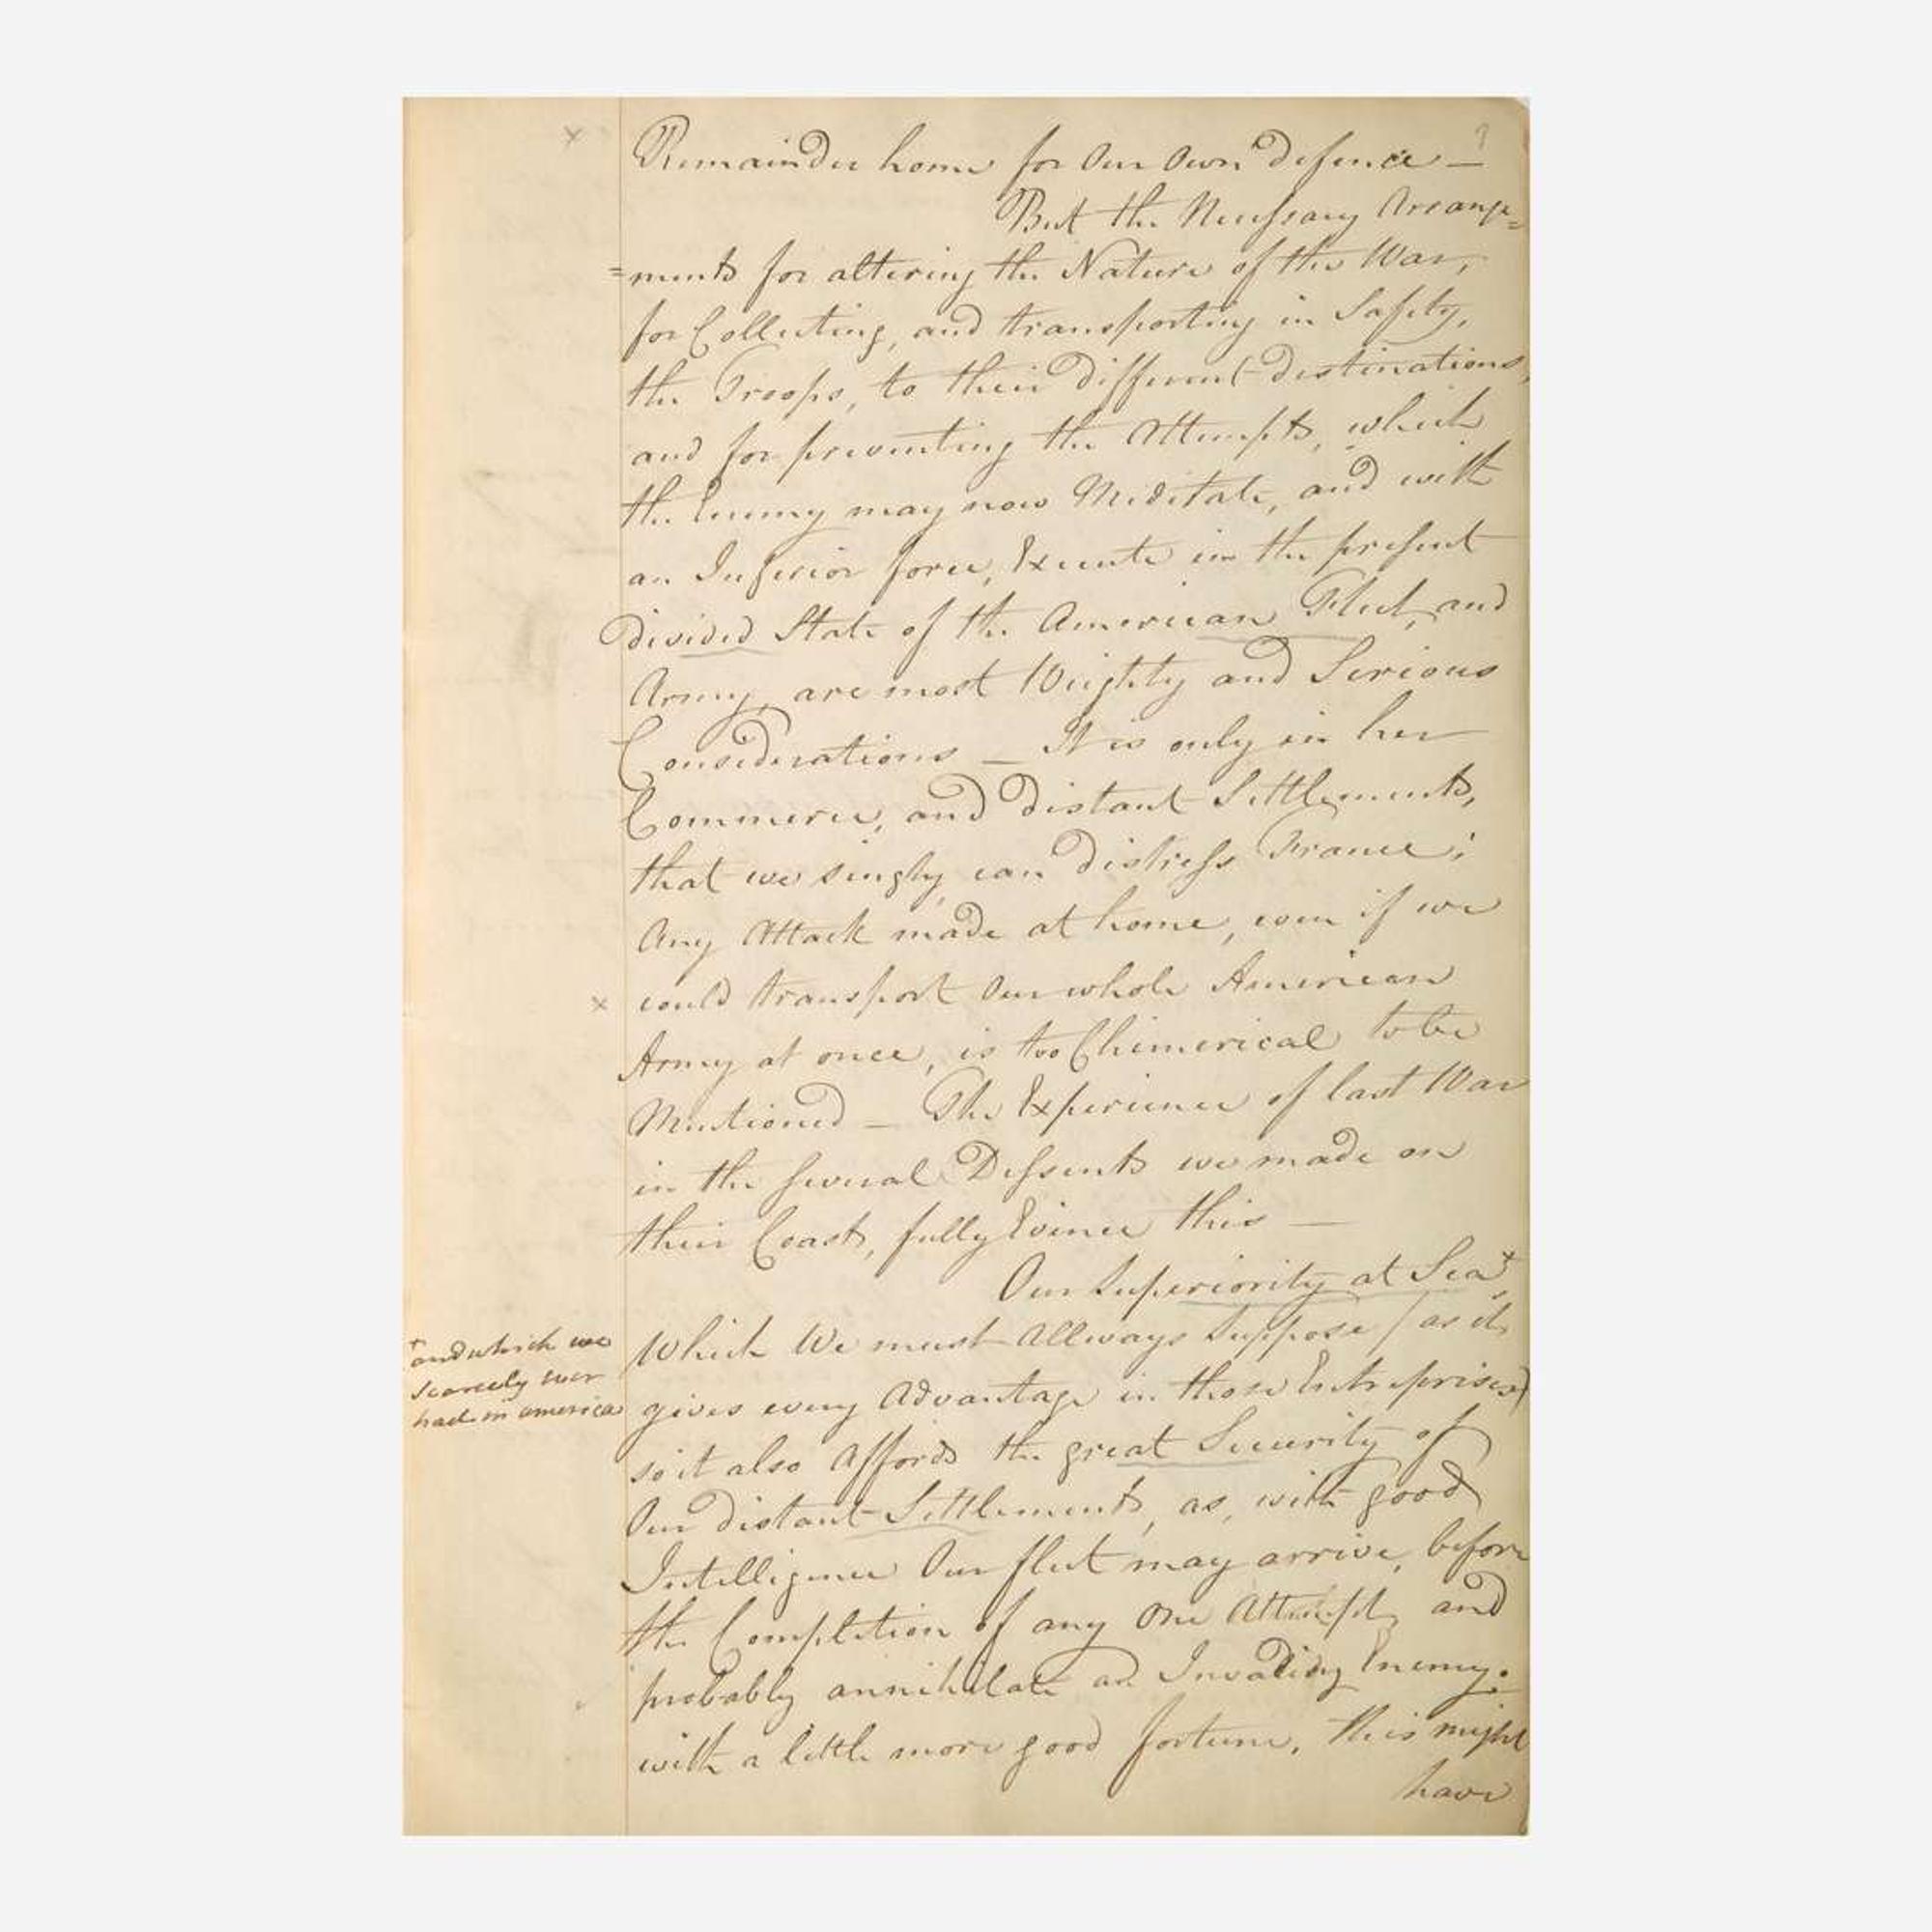 3
Remainder home for Our Own defence —
But the Necessary Arange=
=ments for altering the Nature of the War,
for Collecting, and transporting in Safety,
the Troops, to their different destinations,
and for preventing the Attempts, which
the Enemy may now Meditate, and with
an Inferior force, Execute in the present
divided State of the American Fleet, and
Army, are most Weighty and Serious
Considerations — It is only in her
Commerce, and distant Settlements,
that we singly, can distress France;
Any Attack made at home, even if we
x could transport Our whole American
Army at once, is too Chimerical to be
Mentioned — The Experience of last War
in the several Dessents we made on
their Coast, fully Evince this —
Our Superiority at Sea+,
Which We must Allways Suppose / as it
gives every Advantage in those Entreprises)
so it also Affords the great Security of
Our distant Settlements, as, with good
Intelligence Our fleet may arrive, before
the Completion of any One Attempt, and
probably annihilate an Invading Enemy.
with a little more good fortune, this might
have
+ and which we
scarcely ever
had in america